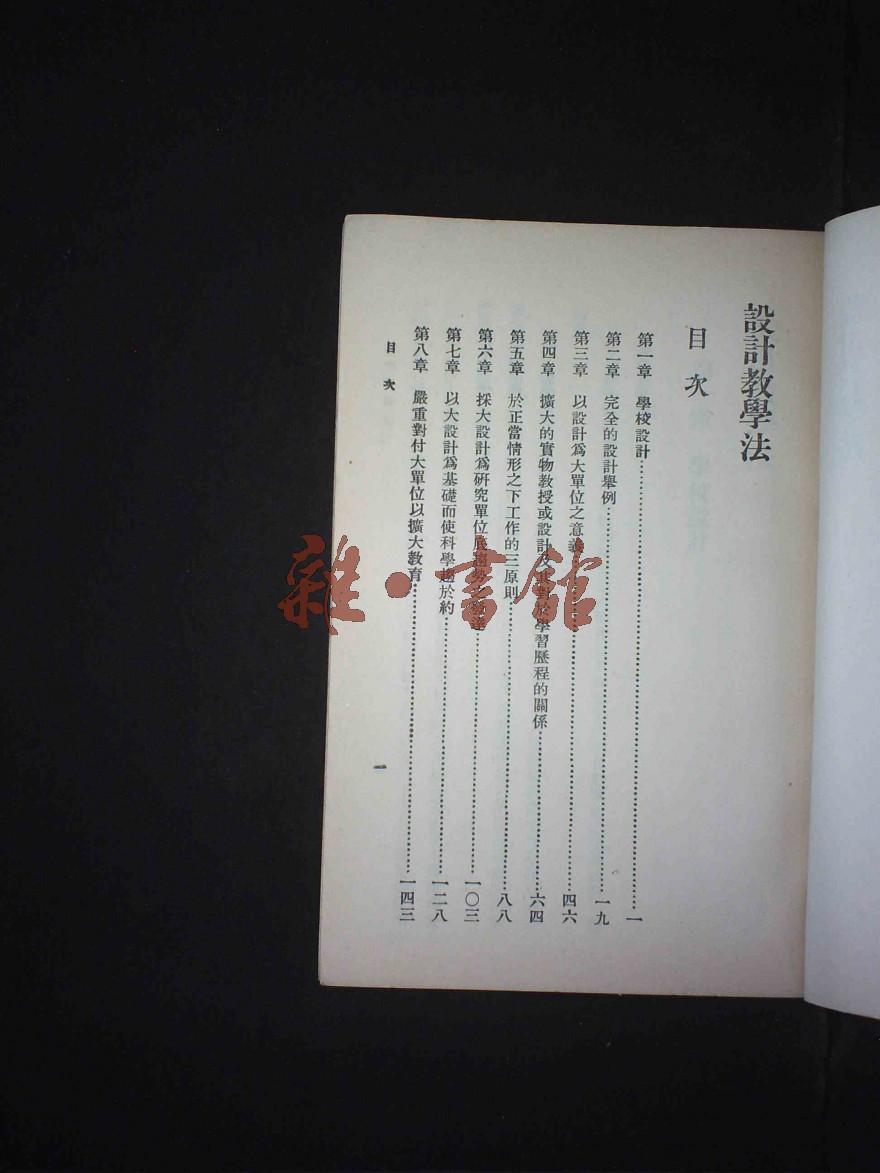 設計教學法
目次
第一章 學校設計…………一
第二章 完全的設計舉例…………一九
第三章 以設計爲大單位之意義…………四六
第四章 擴大的實物教授或設計及其對於學習歷程的關係…………六四
第五章 於正當情形之下工作的三原則…………八八
第六章 採大設計爲研究單位底趨勢之…………一〇三
第七章 以大設計爲基礎而使科學趨於約…………一二八
第八章 嚴重對付大單位以擴大教育…………一四三
目次
一
雜·書館